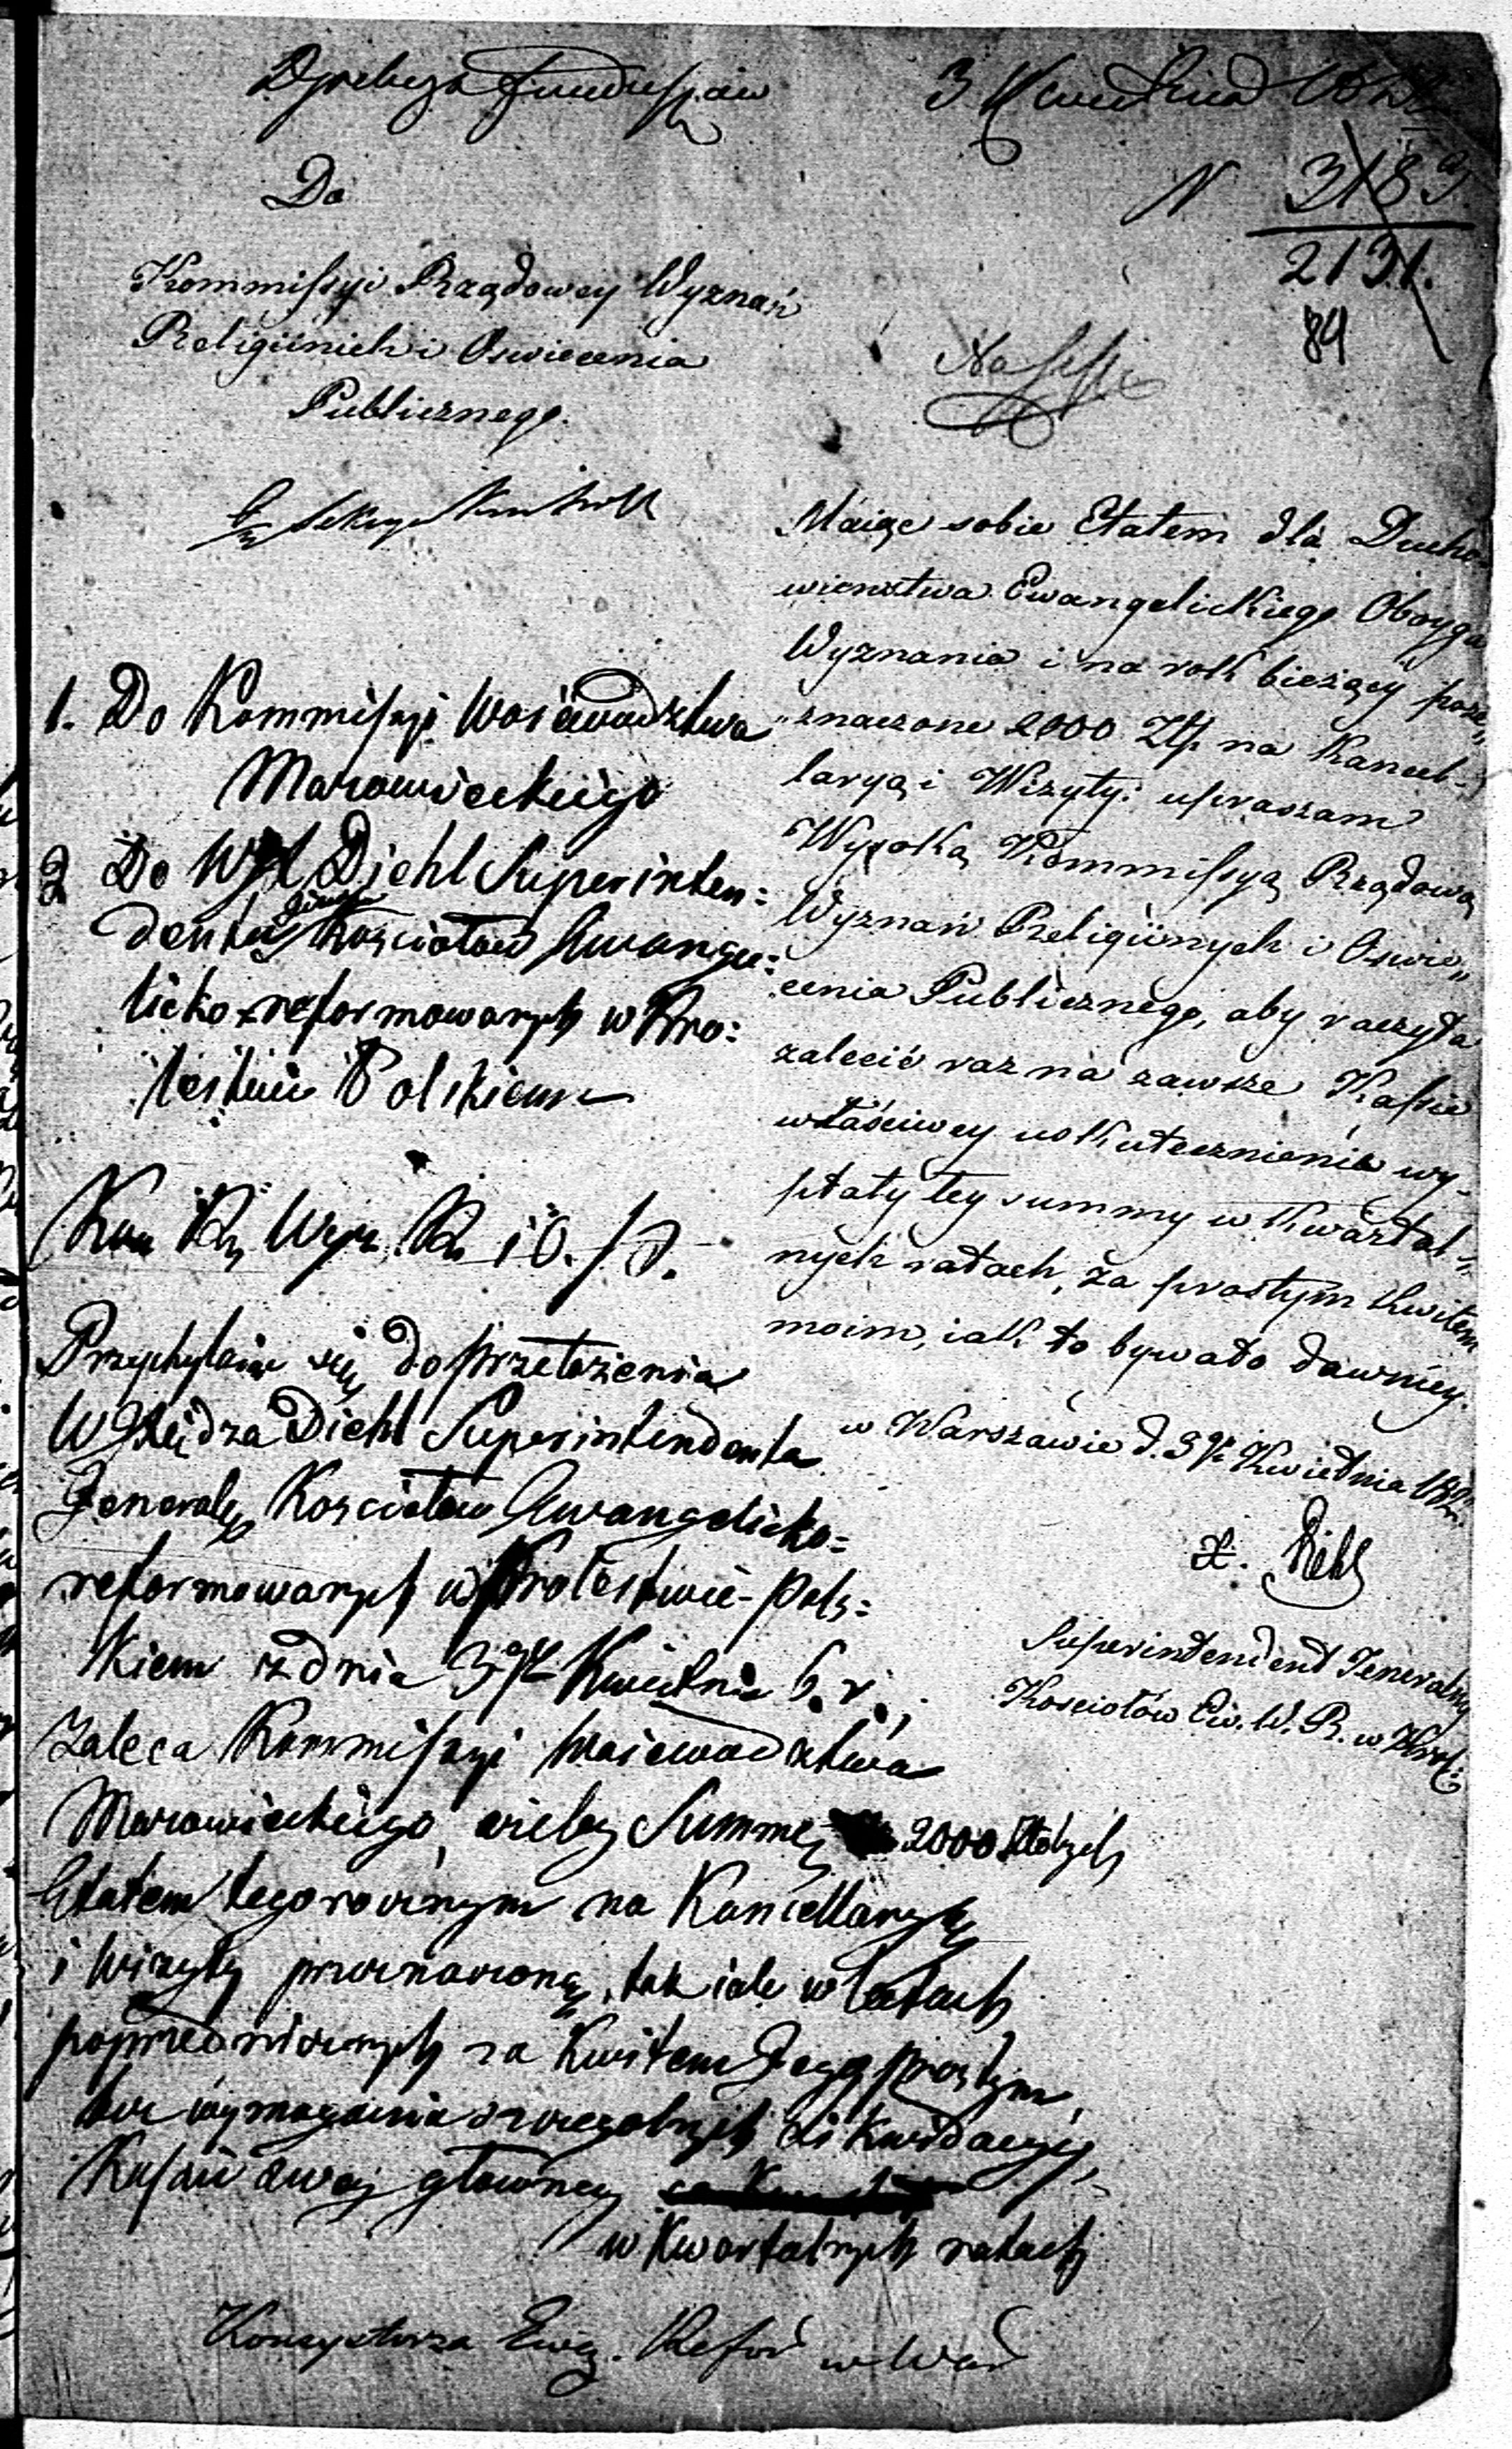 Dyrekcya Funduszów
3 Kwietnia 182
N 3189.
2131.
84
Do
Kommissyi Rządowey Wyznań
Religiinich i Oswiecenia
Publicznego.
Na Sessyi
Maiąc sobie Etatem dla Ducho„
wienstwa Ewangelickiego Oboyga
Wyznania i na rok bieżący prze„
„znaczone 2000 Złp. na Kancel-
laryą i Wizyty; upraszam
Wysoką Kommissyą Rządową
Wyznań Religiinych i Oswie„
cenia Publicznego, aby raczyła
zalecić raz na zawsze Kassie
właściwey uskutecznienie wy-
płaty tey summy w kwartal„
nych ratach, za prostym kwitem
moim, iak to bywało dawniey.
w Warszawie d. 3go Kwietnia 182
X. Diehl
Superintendent Jeneralny
Kościołów Ew. W. R. w Krol:
1. Do Kommissyi Woiewodztwa
Mazowieckiego
2 Do Diehl Superinten:
denta Kościołów Ewange:
licko-reformowanych w Kro:
lestwie Polskiem
Kom Rz Wyz. R. i O. P.
Przychylaiąc się do przełożenia
W Xiędza Diehl Superintendenta
Jeneralg Kościołów Ewangelicko=
reformowanych w Krolestwie-Pols=
kiem z dnia 3go Kwietnia b. r.,
Zaleca Kommissyi Woiewodztwa
Mazowieckiego, ażeby Summę 2000 Złotych
Etatem tegorocznym na Kancellaryą
i Wizyty przeznaczoną, tak iak w latach
poprzedniczych za Kwitem Jego prostym,
bez wymagania szczegolnych likwidacyi,
Kassie swoiey głowney
w Kwartalnych ratach
Konsystorza Ewg. Refor w War